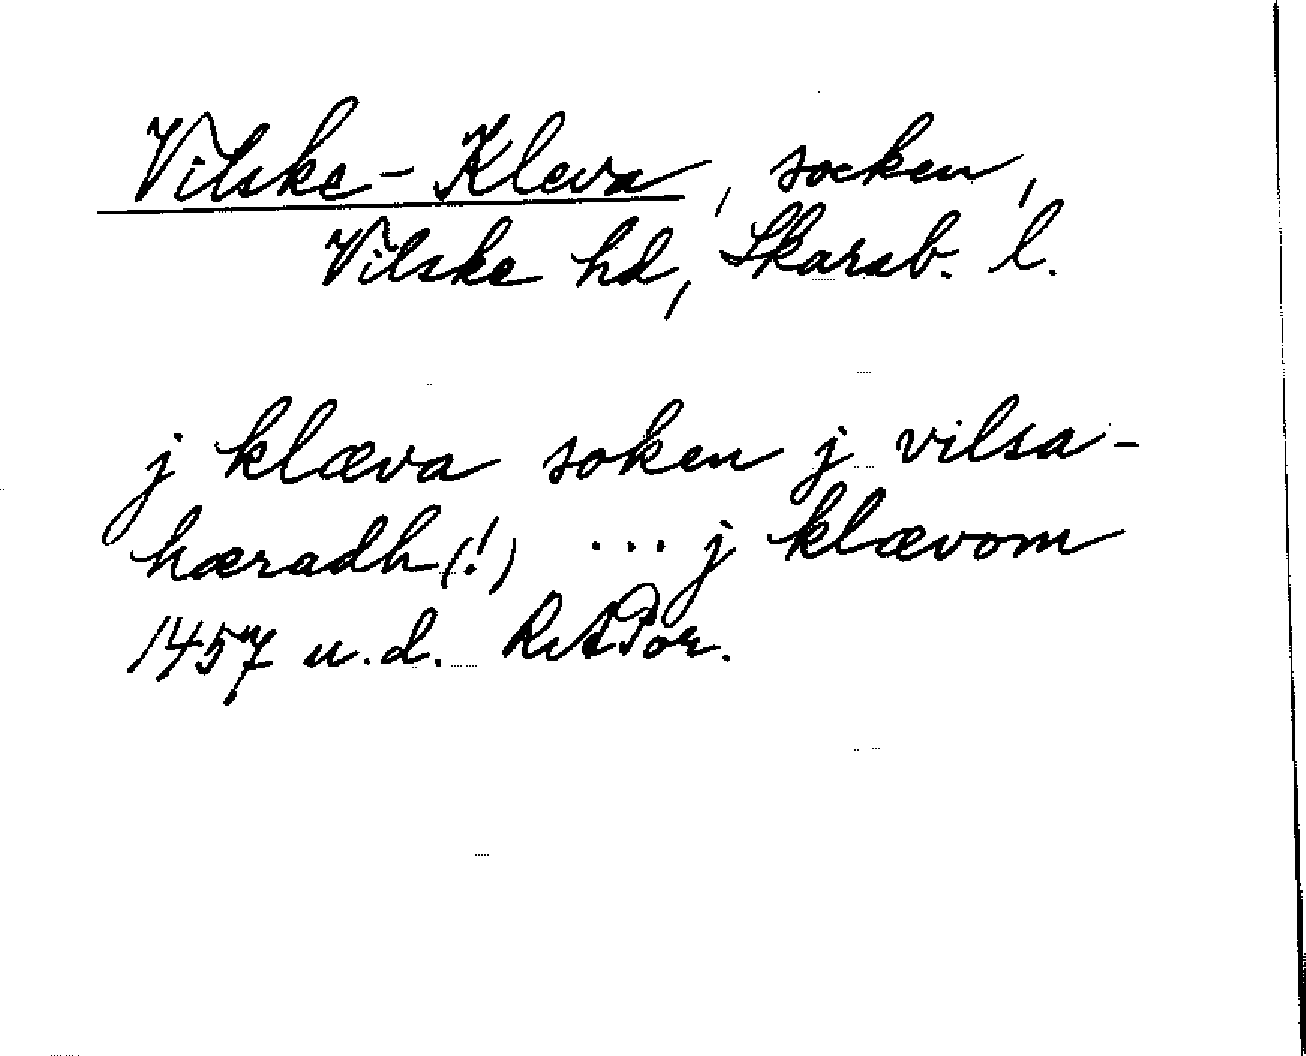 Vilske-Kleva, socken,
Vilske hd, Skarab. l.
j klæva soken j vilsa-
hæradh(!) ... j klævom
1457 u.d. RAPor.